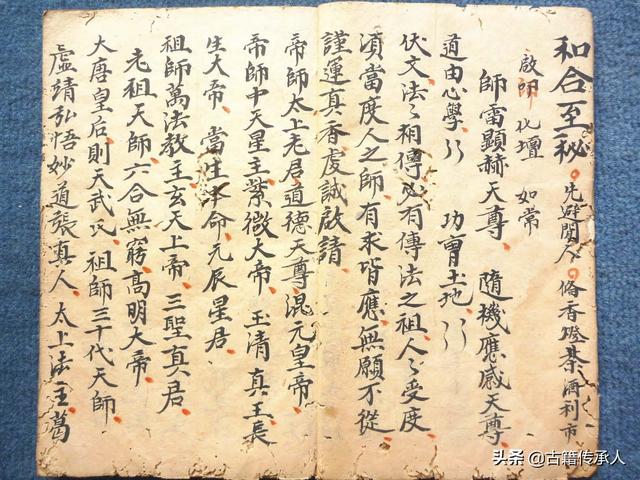 和合至秘 先避閒人 俻香燈茶酒利市
啟師 化壇 如常
師雷顯赫天尊 隨機應感天尊
道由心學〻 功曹土地〻
伏文法〻相傳必有傳法之祖人〻受度
須當度人之師有求皆應無願不從
謹運真香虔誠啟請
帝師太上老君道德天尊混元皇帝
帝師中天星主紫微大帝 玉清真王長
生大帝 當生本命元辰星君
祖師萬法教主玄天上帝 三聖真君
老祖天師六合無窮高明大帝
大唐皇后則天武氏 祖師三十代天師
虛靖弘悟妙道張真人 太上法主葛
头条 @古籍传承人